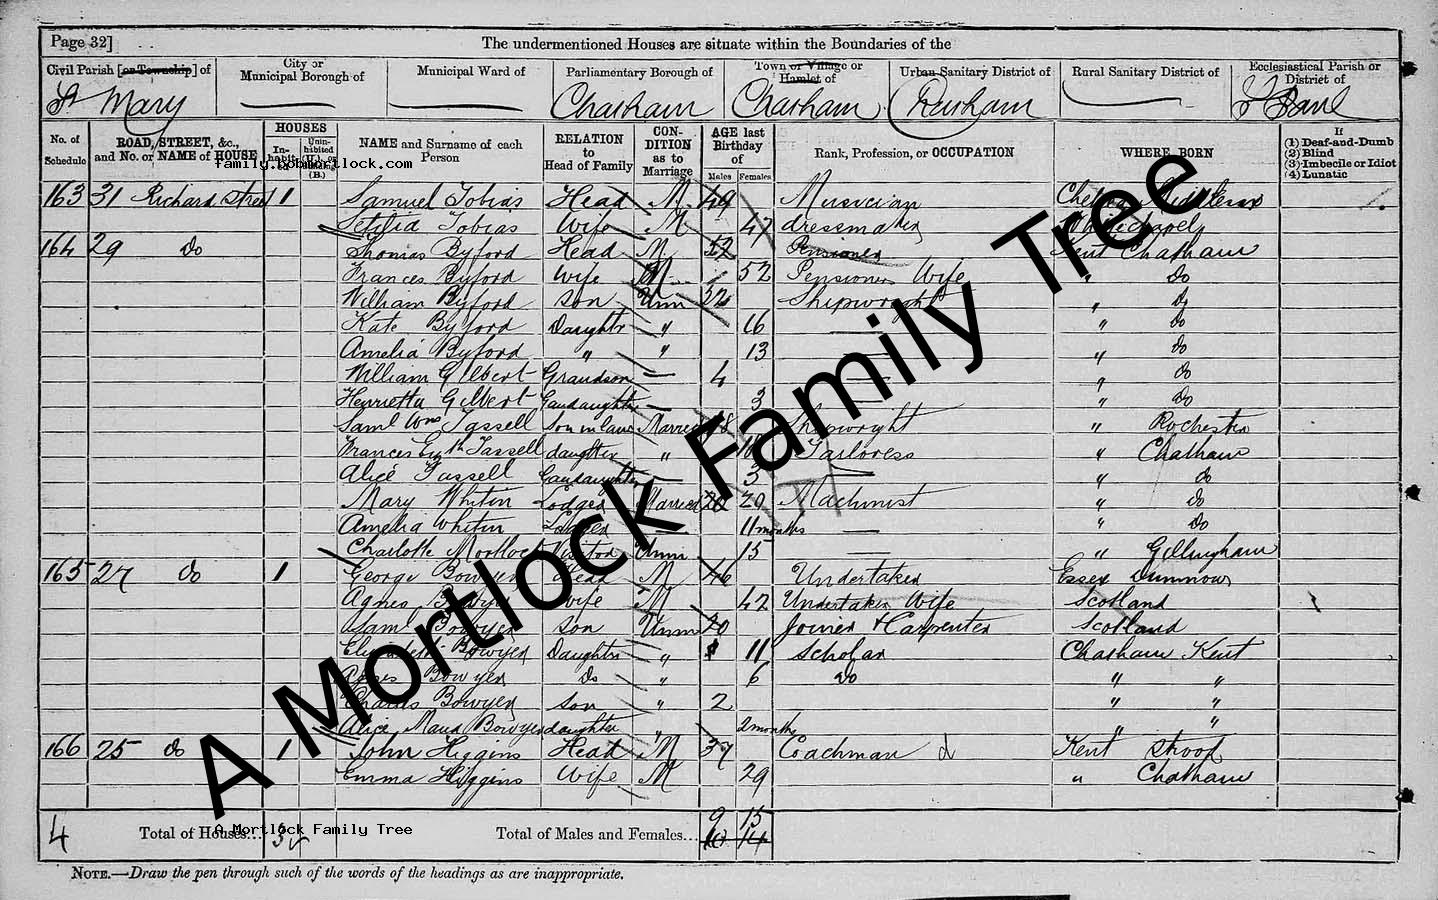 Page 32]
The undermentioned Houses are situate within the Boundaries of the
Civil Parish [or Township] of
City or Municipal Borough of
Municipal Ward of
Parliamentary Borough of
Town or Village or Hamlet of
Urban Sanitary District of
Rural Sanitary District of
Ecclesiastical Parish or District of
St Mary Chatham Chatham St Paul
No. of Schedule
ROAD, STREET, &c., and No. or NAME of HOUSE
HOUSES
In-habited
Unin-habited (U.), or Building (B.)
NAME and Surname of each Person
RELATION to Head of Family
CON-DITION as to Marriage
AGE last Birthday of
Males Females
Rank, Profession, or OCCUPATION
WHERE BORN
If
(1) Deaf-and-Dumb
(2) Blind
(3) Imbecile or Idiot
(4) Lunatic
family.bobmortlock.com
163 31 Richard Street 1 Samuel Tobias Head M 49 Musician Middlesex
Tobias Wife M 47 dressmaker Whitechapel
164 29 Do Thomas Byford Head M 52 Pensioner Kent Chatham
Frances Byford Wife M 52 Pensioner Wife " Do
William Byford Son Unm 32 Shipwright " Do
Kate Byford Daughtr " 16 — " Do
Amelia Byford " " 13 " Do
William Gilbert Grandson — 4 — " Do
Henrietta Gilbert — 3 " Do
Saml Wm Tassell Son in law Married Shipwright " Rochester
Frances Tassell daughter " Tailoress " Chatham
Alice Tassell — 3 — " Do
Mary Whitin Lodger Married 20 Machinist " Do
Amelia Whitin Lodger — 11 months — " Do
Charlotte Mortlock Visitor Unm 15 — " Gillingham
165 27 Do 1 George Bowyer Head M 46 Undertaker Essex Dunmow
Agnes Bowyer Wife M 42 Undertaker Wife Scotland
Saml Bowyer Son Unm 20 Joiner & Carpenter Scotland
Bowyer Daughtr " 11 Scholar Chatham Kent
Bowyer Do " 6 Do " "
Charles Bowyer Son " 2 " "
Alice Maud Bowyer daughter " 2 months " "
166 25 Do 1 John Higgins Head M 37 Coachman Kent Strood
Emma Higgins Wife M 29 " Chatham
9 15
4 Total of Houses... 3 Total of Males and Females... 10 14
A Mortlock Family Tree
NOTE.—Draw the pen through such of the words of the headings as are inappropriate.
A Mortlock Family Tree